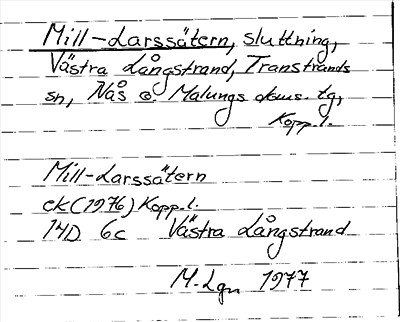 Mill-Larssätern, sluttning,
Västra Långstrand, Transtrands
sn, Nås o. Malungs doms. tg,
Kopp. l.
Mill-Larssätern
ek (1976) Kopp. l.
14D 6c Västra Långstrand
M. Lgn 1977